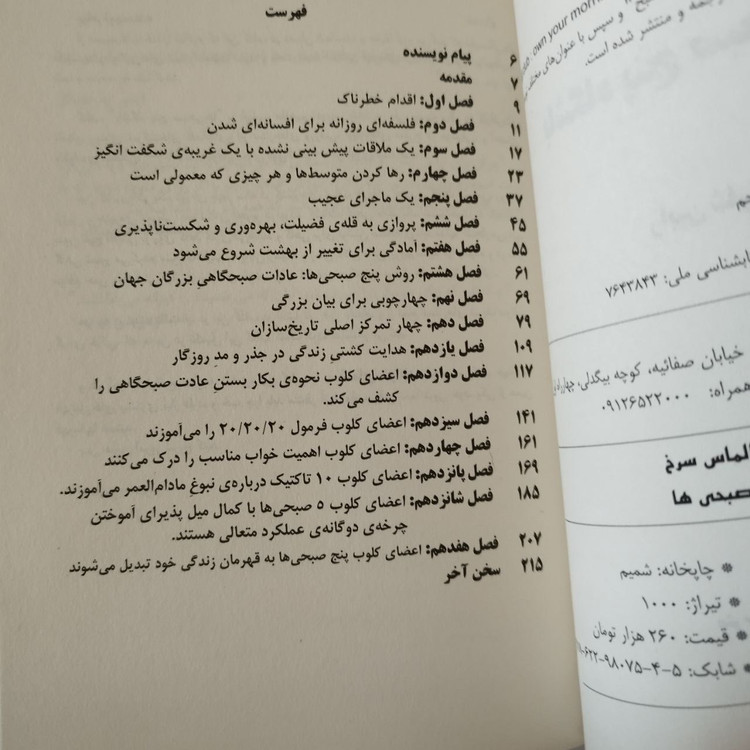 فهرست
پیام نویسنده ۶
مقدمه ۷
فصل اول: اقدام خطرناک ۹
فصل دوم: فلسفه‌ای روزانه برای افسانه‌ای شدن ۱۱
فصل سوم: یک ملاقات پیش بینی نشده با یک غریبه‌ی شگفت انگیز ۱۷
فصل چهارم: رها کردن متوسط‌ها و هر چیزی که معمولی است ۲۳
فصل پنجم: یک ماجرای عجیب ۳۷
فصل ششم: پروازی به قله‌ی فضیلت، بهره‌وری و شکست‌ناپذیری ۴۵
فصل هفتم: آمادگی برای تغییر از بهشت شروع می‌شود ۵۵
فصل هشتم: روش پنج صبحی‌ها: عادات صبحگاهیِ بزرگان جهان ۶۱
فصل نهم: چهارچوبی برای بیان بزرگی ۶۹
فصل دهم: چهار تمرکز اصلی تاریخ‌سازان ۷۹
فصل یازدهم: هدایت کشتیِ زندگی در جذر و مدِ روزگار ۱۰۹
فصل دوازدهم: اعضای کلوب نحوه‌ی بکار بستنِ عادت صبحگاهی را ۱۱۷
کشف می‌کند.
فصل سیزدهم: اعضای کلوب فرمول ۲۰/۲۰/۲۰ را می‌آموزند ۱۴۱
فصل چهاردهم: اعضای کلوب اهمیت خواب مناسب را درک می‌کنند ۱۶۱
فصل پانزدهم: اعضای کلوب ۱۰ تاکتیک درباره‌ی نبوغِ مادام‌العمر می‌آموزند. ۱۶۹
فصل شانزدهم: اعضای کلوب ۵ صبحی‌ها با کمال میل پذیرای آموختن ۱۸۵
چرخه‌ی دوگانه‌ی عملکرد متعالی هستند.
فصل هفدهم: اعضای کلوب پنج صبحی‌ها به قهرمان زندگی خود تبدیل می‌شوند ۲۰۷
سخن آخر ۲۱۵
own your morn
و سپس با عنوان‌های
جمه و منتشر شده است.
ملی: ۷۶۴۳۸۴۳
خیابان صفائیه، کوچه بیگدلی،
همراه: ۰۹۱۲۶۵۲۲۰۰۰
الماس سرخ
صبحی ها
چاپخانه: شمیم
تیراژ: ۱۰۰۰
قیمت: ۲۶۰ هزار تومان
شابک: ۶۲۲-۹۸۰۷۵-۴-۵